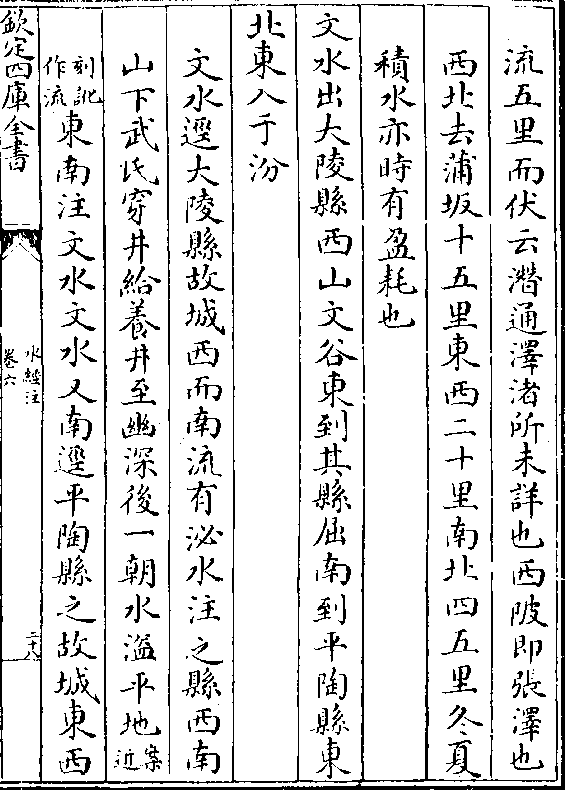 流五里而伏云潛通澤渚所未詳也西陂即張澤也
西北去蒲坂十五里東西二十里南北四五里冬夏
積水亦時有盈耗也
文水出大陵縣西山文谷東到其縣屈南到平陶縣東
北東入于汾
文水逕大陵縣故城西而南流有泌水注之縣西南
山下武氏穿井給養井至幽深後一朝水溢平地案近
刻訛作流東南注文水文水又南逕平陶縣之故城東西
欽定四庫全書
水經注
卷六
二十八